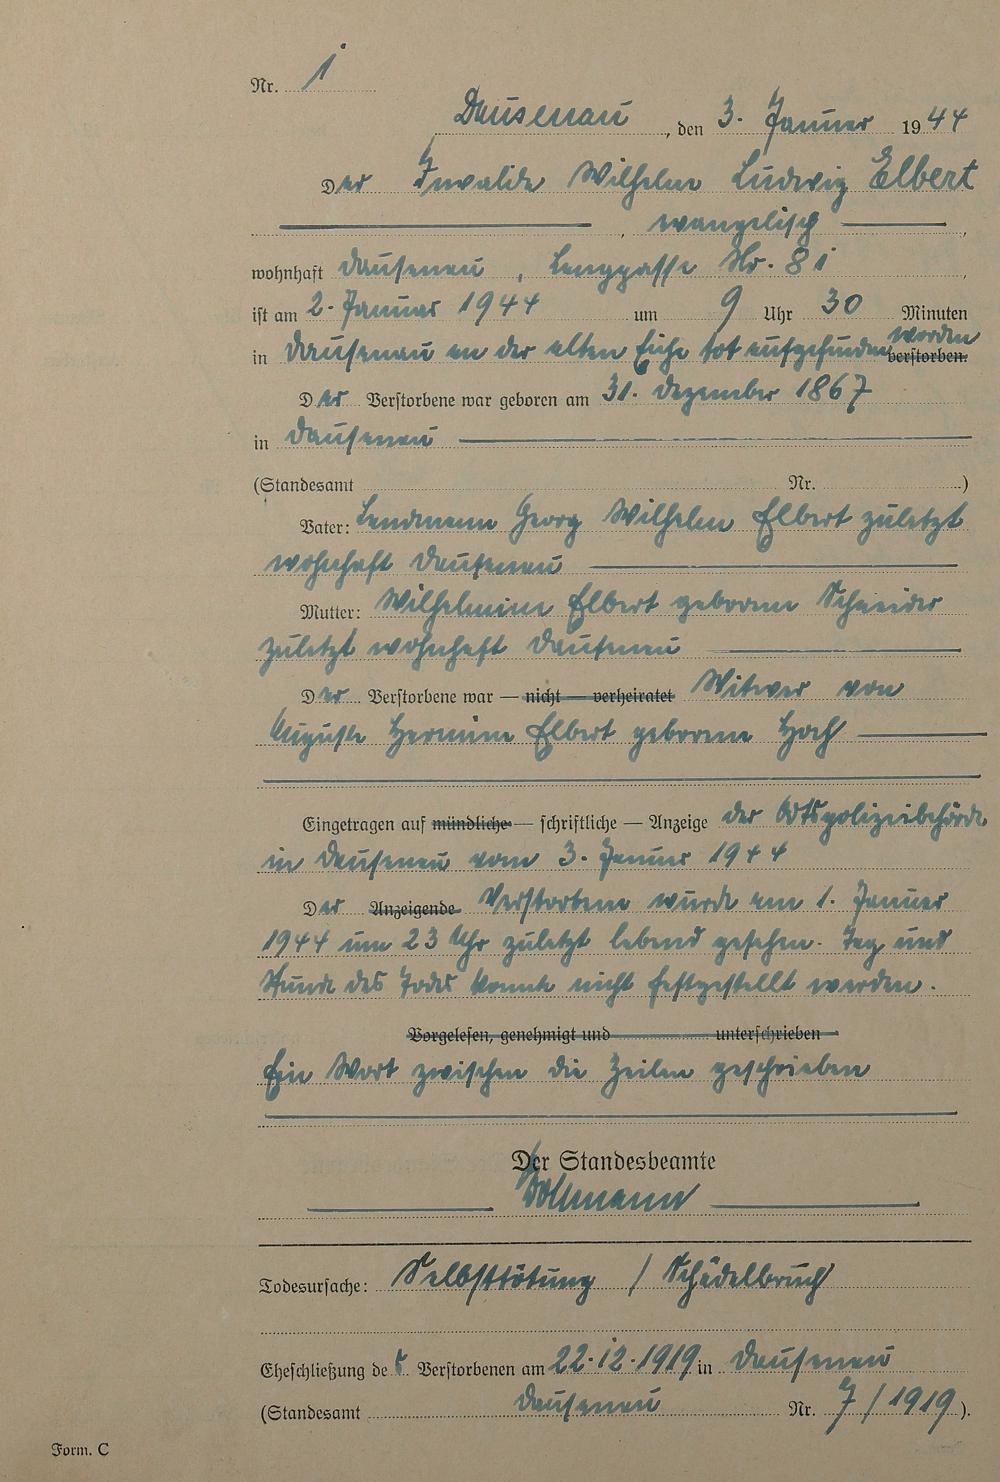 Nr. 1
Dausenau, den 3. Januar 1944
Der Invalide Wilhelm Ludwig Elbert
, evangelisch ,
wohnhaft Dausenau, Langgasse Nr. 81 ,
ist am 2. Januar 1944 um 9 Uhr 30 Minuten
in Dausenau an der alten Eiche tot aufgefunden worden verstorben.
Der Verstorbene war geboren am 31. Dezember 1867
in Dausenau
(Standesamt Nr. )
Vater: Landmann Georg Wilhelm Elbert zuletzt
wohnhaft Dausenau
Mutter: Wilhelmine Elbert geborene Schneider
zuletzt wohnhaft Dausenau
Der Verstorbene war — nicht — verheiratet Witwer von
Auguste Hermine Elbert geborene Hoch
Eingetragen auf mündliche — schriftliche — Anzeige der Ortspolizeibehörde
in Dausenau vom 3. Januar 1944
Der Anzeigende Verstorbene wurde am 1. Januar
1944 um 23 Uhr zuletzt lebend gesehen. Tag und
Stunde des Todes konnte nicht festgestellt werden.
Vorgelesen, genehmigt und unterschrieben
Ein Wort zwischen die Zeilen geschrieben
Der Standesbeamte
Todesursache: Selbsttötung / Schädelbruch
Eheschließung des Verstorbenen am 22.12.1919 in Dausenau
(Standesamt Dausenau Nr. 7/1919).
Form. C